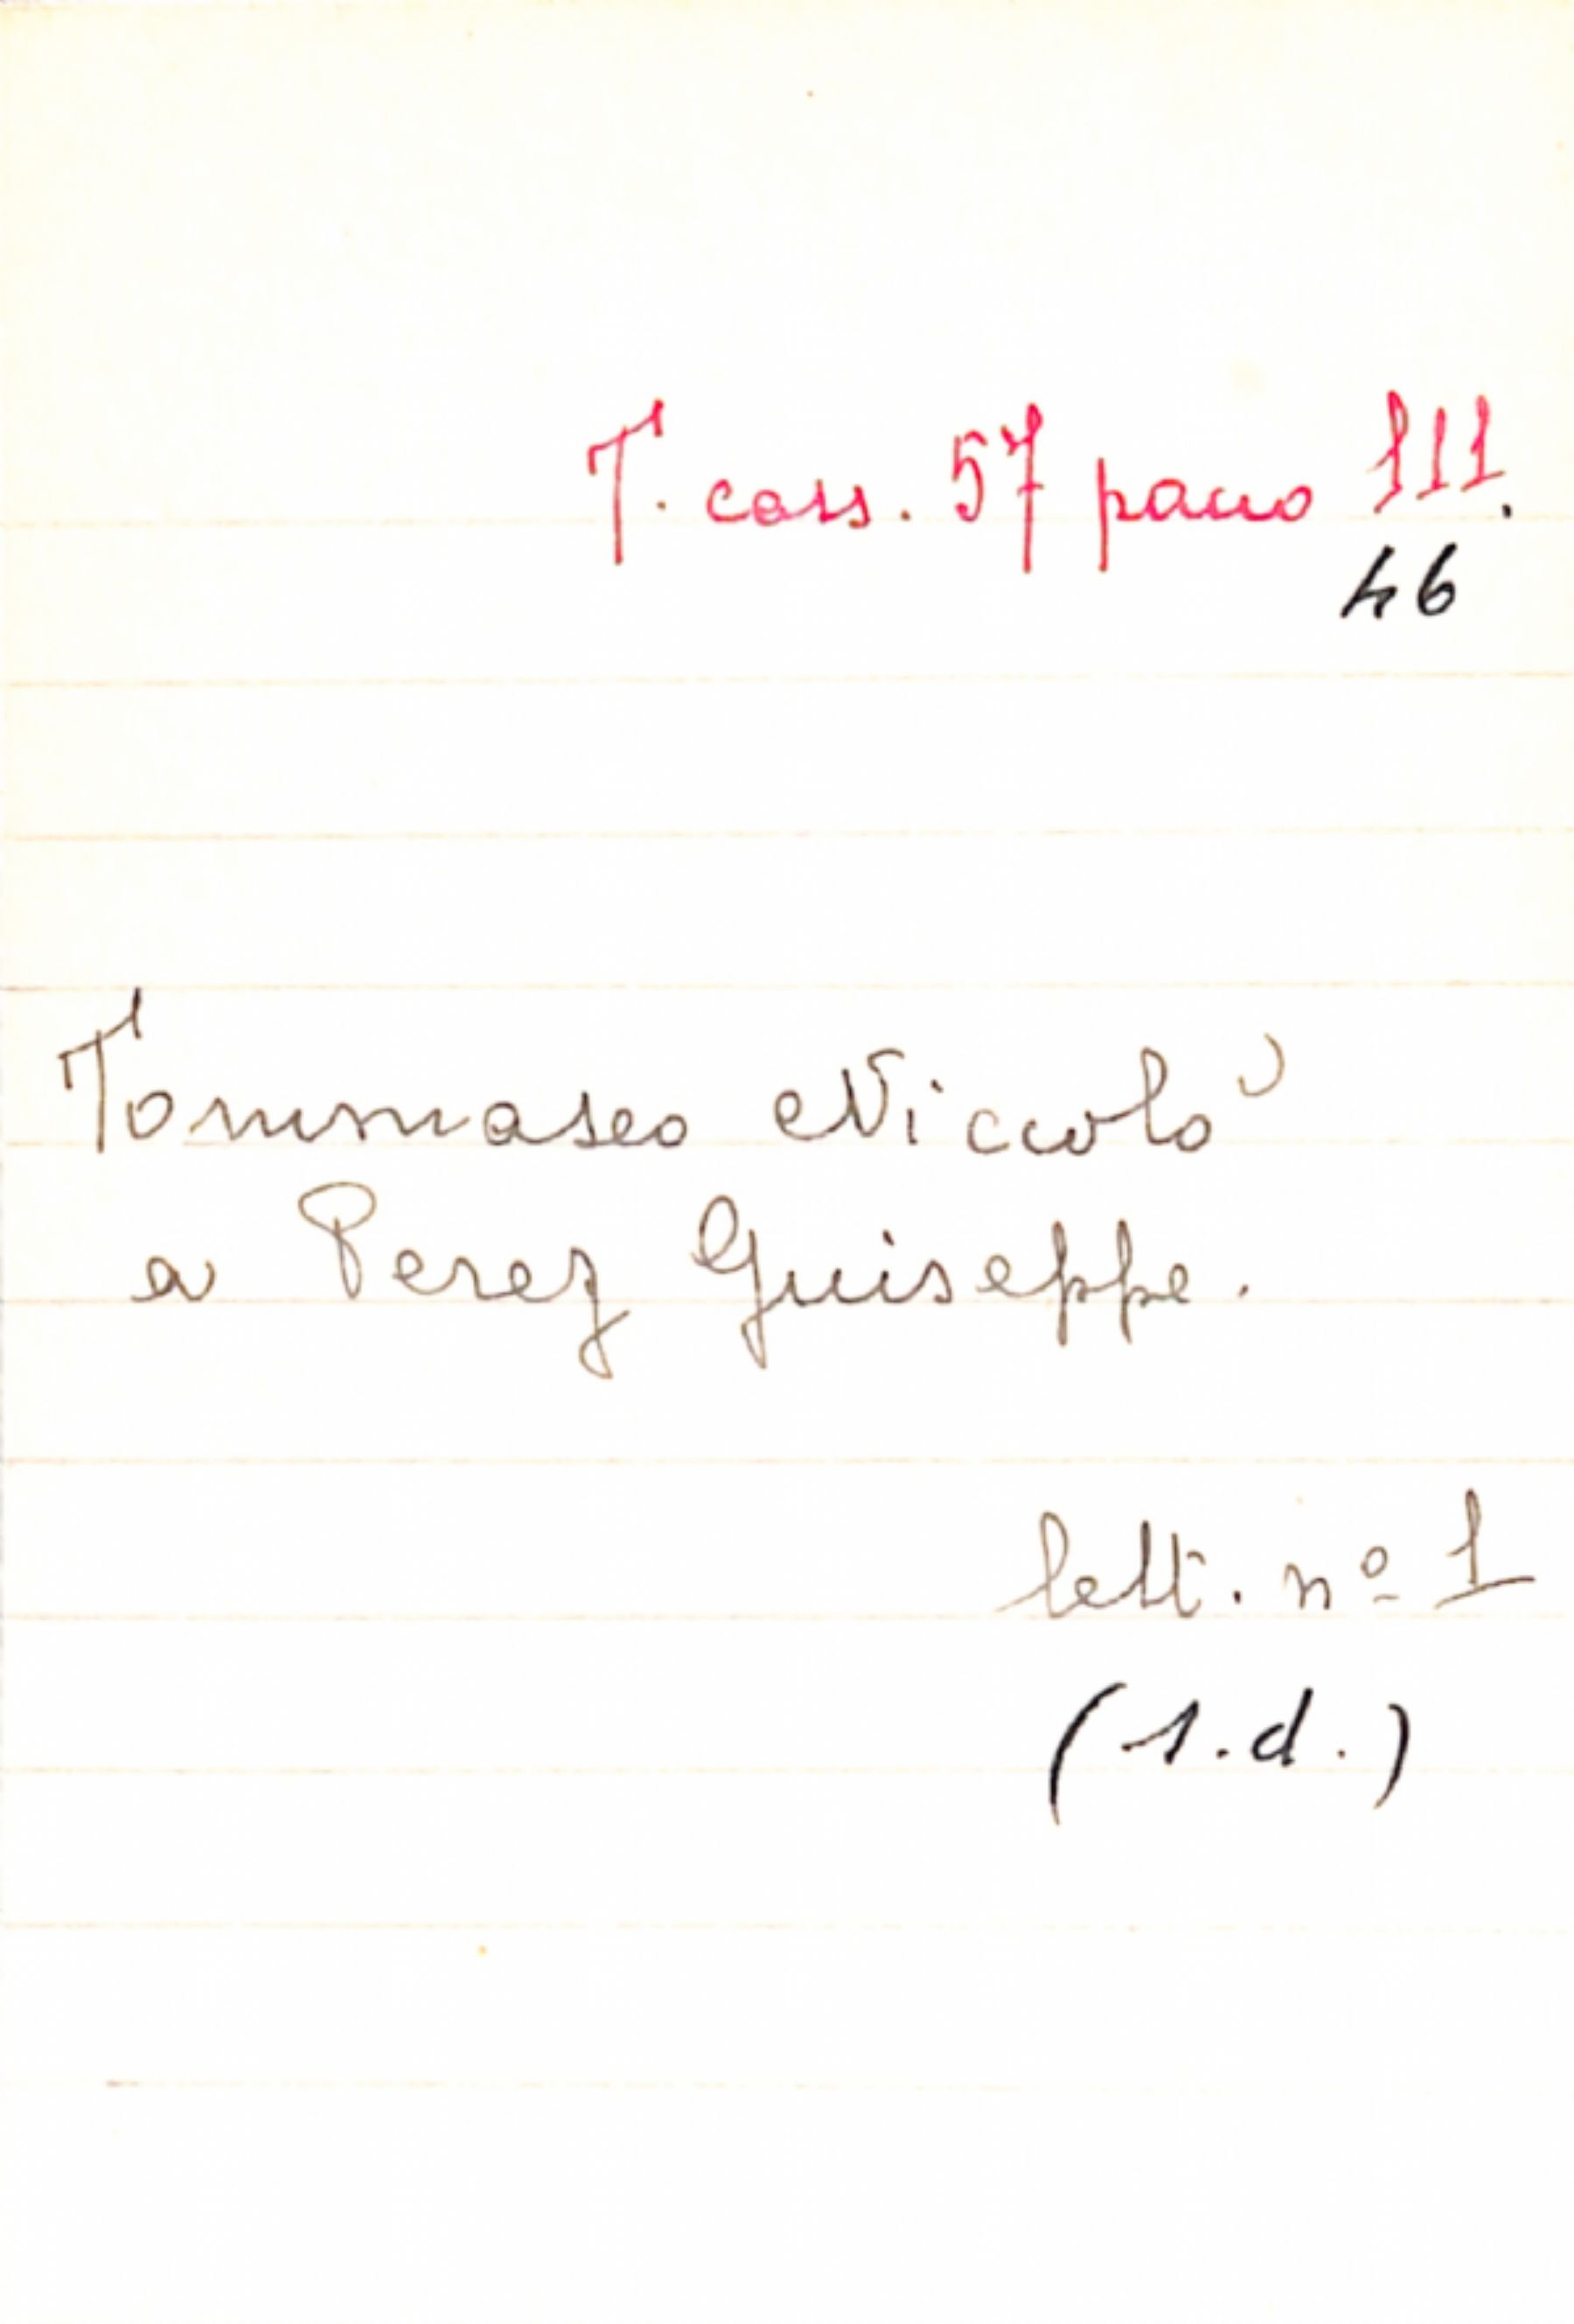 T. cass. 57 pacco III.
46
Tommaseo Niccolò
a Perez Giuseppe.
lett. nº 1
(s.d.)